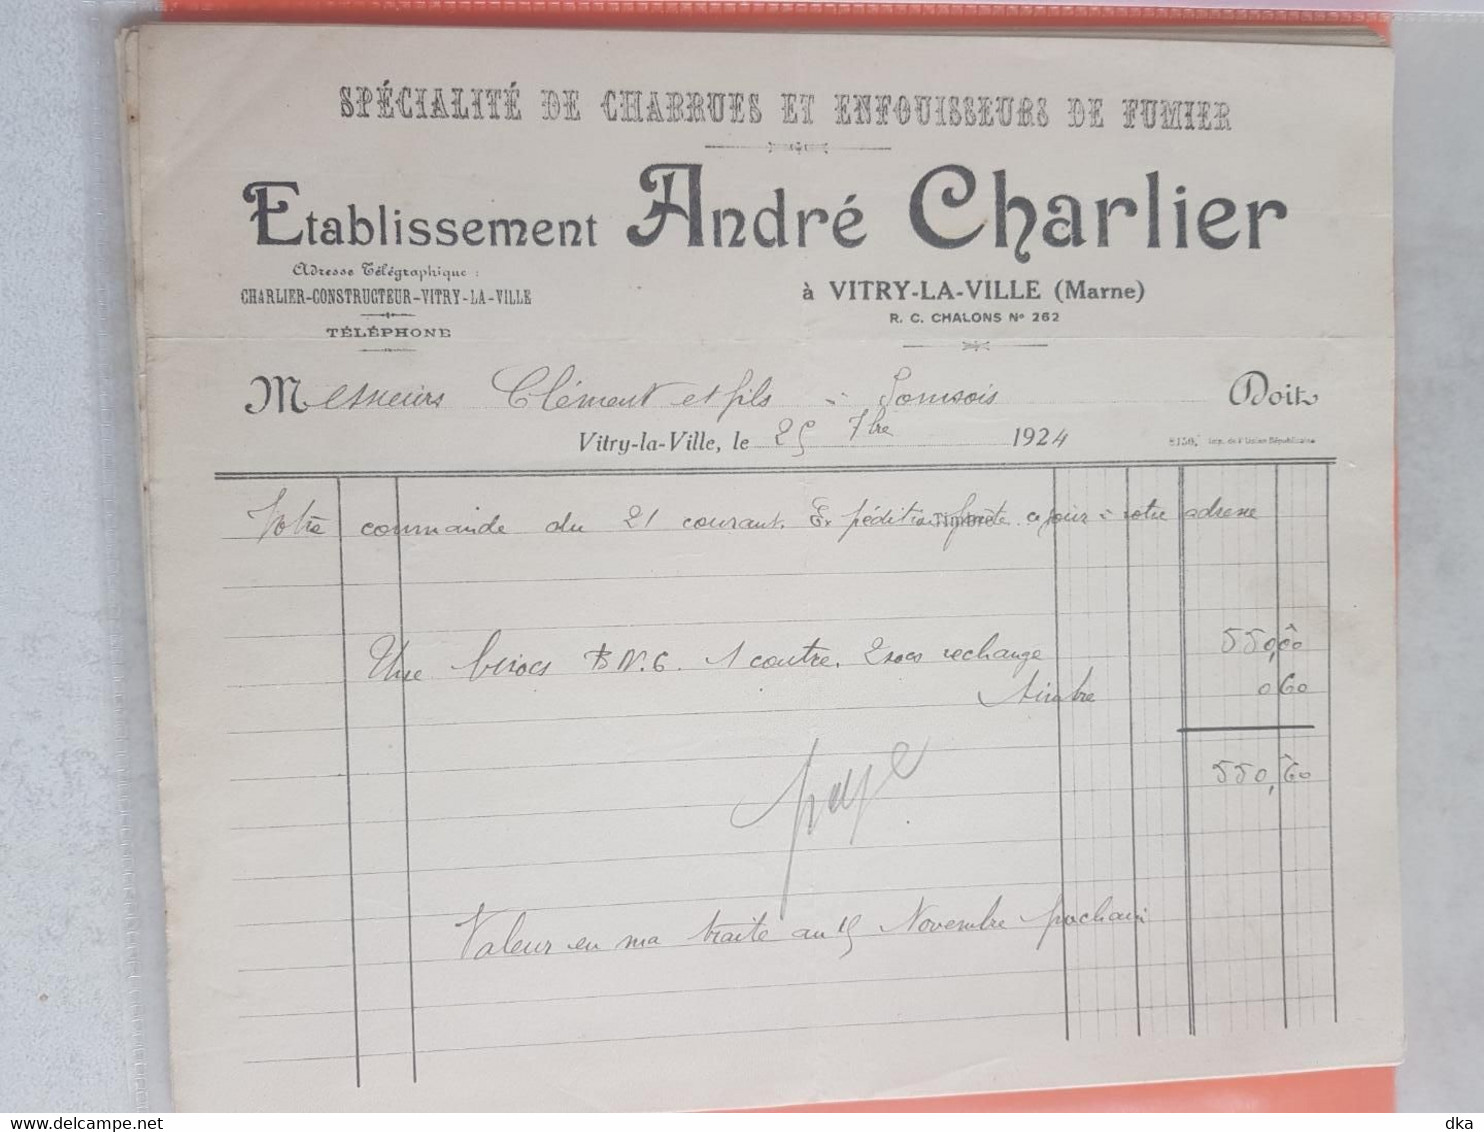 SPÉCIALITÉ DE CHARRUES ET ENFOUISSEURS DE FUMIER
Etablissement André Charlier
Adresse Télégraphique :
CHARLIER-CONSTRUCTEUR-VITRY-LA-VILLE
TÉLÉPHONE
à VITRY-LA-VILLE (Marne)
R. C. CHALONS Nº 262
Messieurs Clément et fils à Somsois Doit
Vitry-la-Ville, le 25 7bre 1924
Imp. de l'Union Républicaine
Votre commande du 21 courant. Expédition faite ce jour à votre adresse
Une bisocs B N. 6. 1 coutre. 2 socs rechange 550,00
timbre 0 60
550,60
payé
Valeur en ma traite au 15 Novembre prochain
delcampe.net
dka